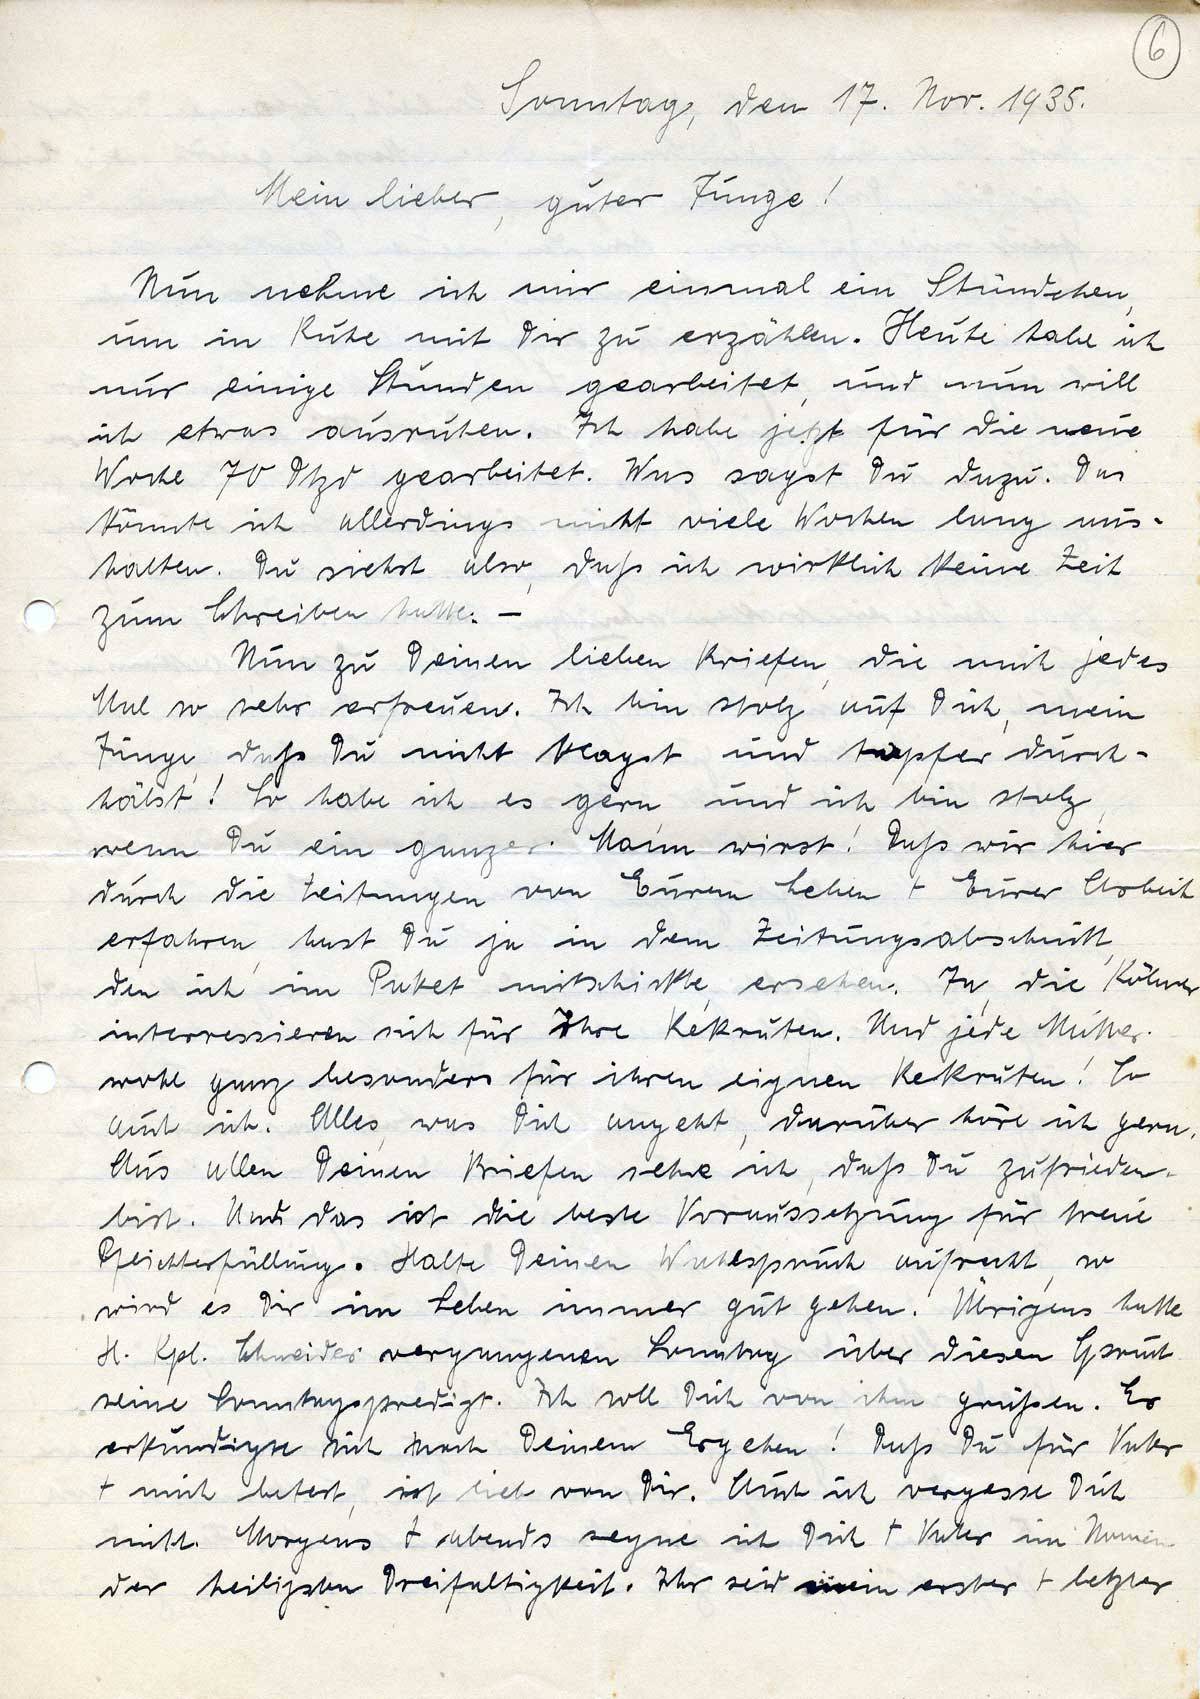 6
Sonntag, den 17. Nov. 1935.
Mein lieber, guter Junge!
Nun nehme ich mir einmal ein Stündchen,
um in Ruhe mit Dir zu erzählen. Heute habe ich
nur einige Stunden gearbeitet, und nun will
ich etwas ausruhen. Ich habe jetzt für die neue
Woche 70 Dtzd gearbeitet. Was sagst Du dazu. Das
könnte ich allerdings nicht viele Wochen lang aus-
halten. Du siehst also, daß ich wirklich keine Zeit
zum Schreiben hatte. –
Nun zu Deinen lieben Briefen, die mich jedes
Mal so sehr erfreuen. Ich bin stolz auf Dich, mein
Junge, daß Du nicht klagst und tapfer durch-
hälst! So habe ich es gern, und ich bin stolz,
wenn Du ein ganzer Mann wirst! Daß wir hier
durch die Zeitungen von Eurem Leben + Eurer Arbeit
erfahren, hast Du ja in dem Zeitungsabschnitt,
den ich im Paket mitschickte, ersehen. Ja, die Kölner
interressieren sich für Ihre Rekruten. Und jede Mutter
wohl ganz besonders für ihren eignen Rekruten! So
auch ich. Alles, was Dich angeht, darüber höre ich gern.
Aus allen Deinen Briefen sehe ich, daß Du zufrieden
bist. Und das ist die beste Voraussetzung für treue
Pflichterfüllung. Halte Deinen Wahlspruch aufrecht, so
wird es Dir im Leben immer gut gehen. Übrigens hatte
H. Kpl. Schneider vergangenen Sonntag über diesen Spruch
seine Sonntagspredigt. Ich soll Dich von ihm grüßen. Er
erkundigte sich nach Deinem Ergehen! Daß Du für Vater
+ mich betest, ist lieb von Dir. Auch ich vergesse Dich
nicht. Morgens + abends segne ich Dich + Vater im Namen
der heiligsten Dreifaltigkeit. Ihr seid mein erster + letzter